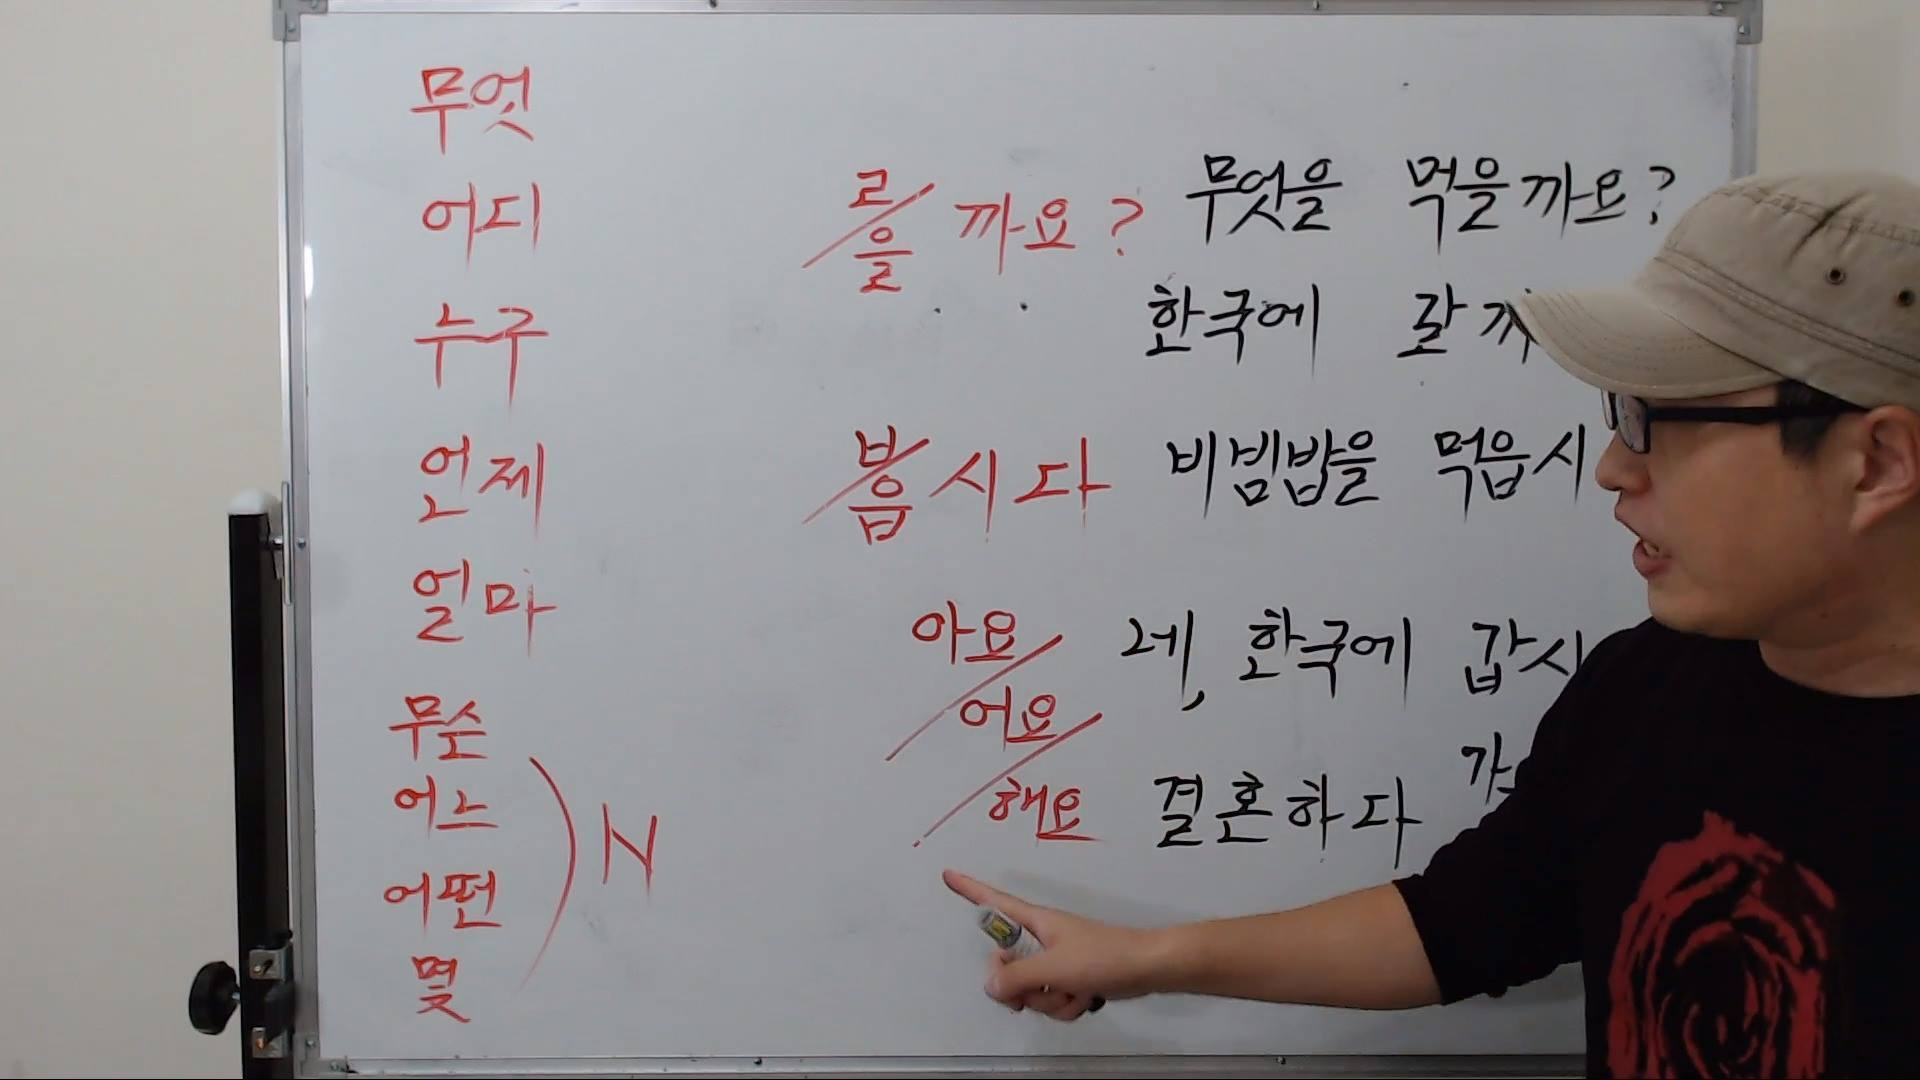 무엇
어디
누구
언제
얼마
무슨
어느
어떤
몇
N
ㄹ/을 까요?
무엇을 먹을까요?
한국에 갈까
ㅂ/읍시다
비빔밥을 먹읍시
아요/어요/해요
네, 한국에 갑시
결혼하다